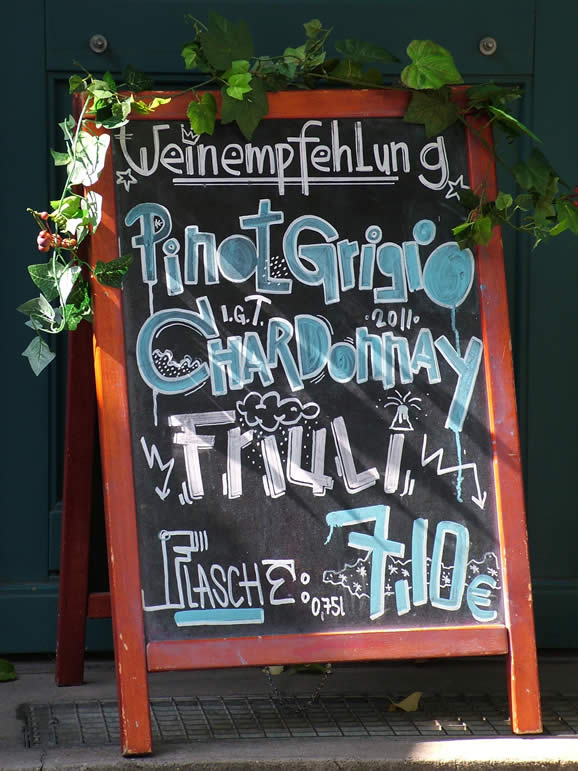 Weinempfehlung
Pinot Grigio
I.G.T. 2011
CHARDONNAY
FRiULi
FLASCHE: 0,75l 7,10€